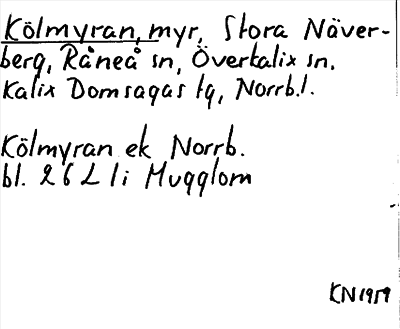 Kölmyran, myr, Stora Näver-
berg, Råneå sn, Överkalix sn.
Kalix Domsagas tg, Norrb.l.
Kölmyran ek Norrb.
bl. 26 L 1i Mugglom
KN 1959